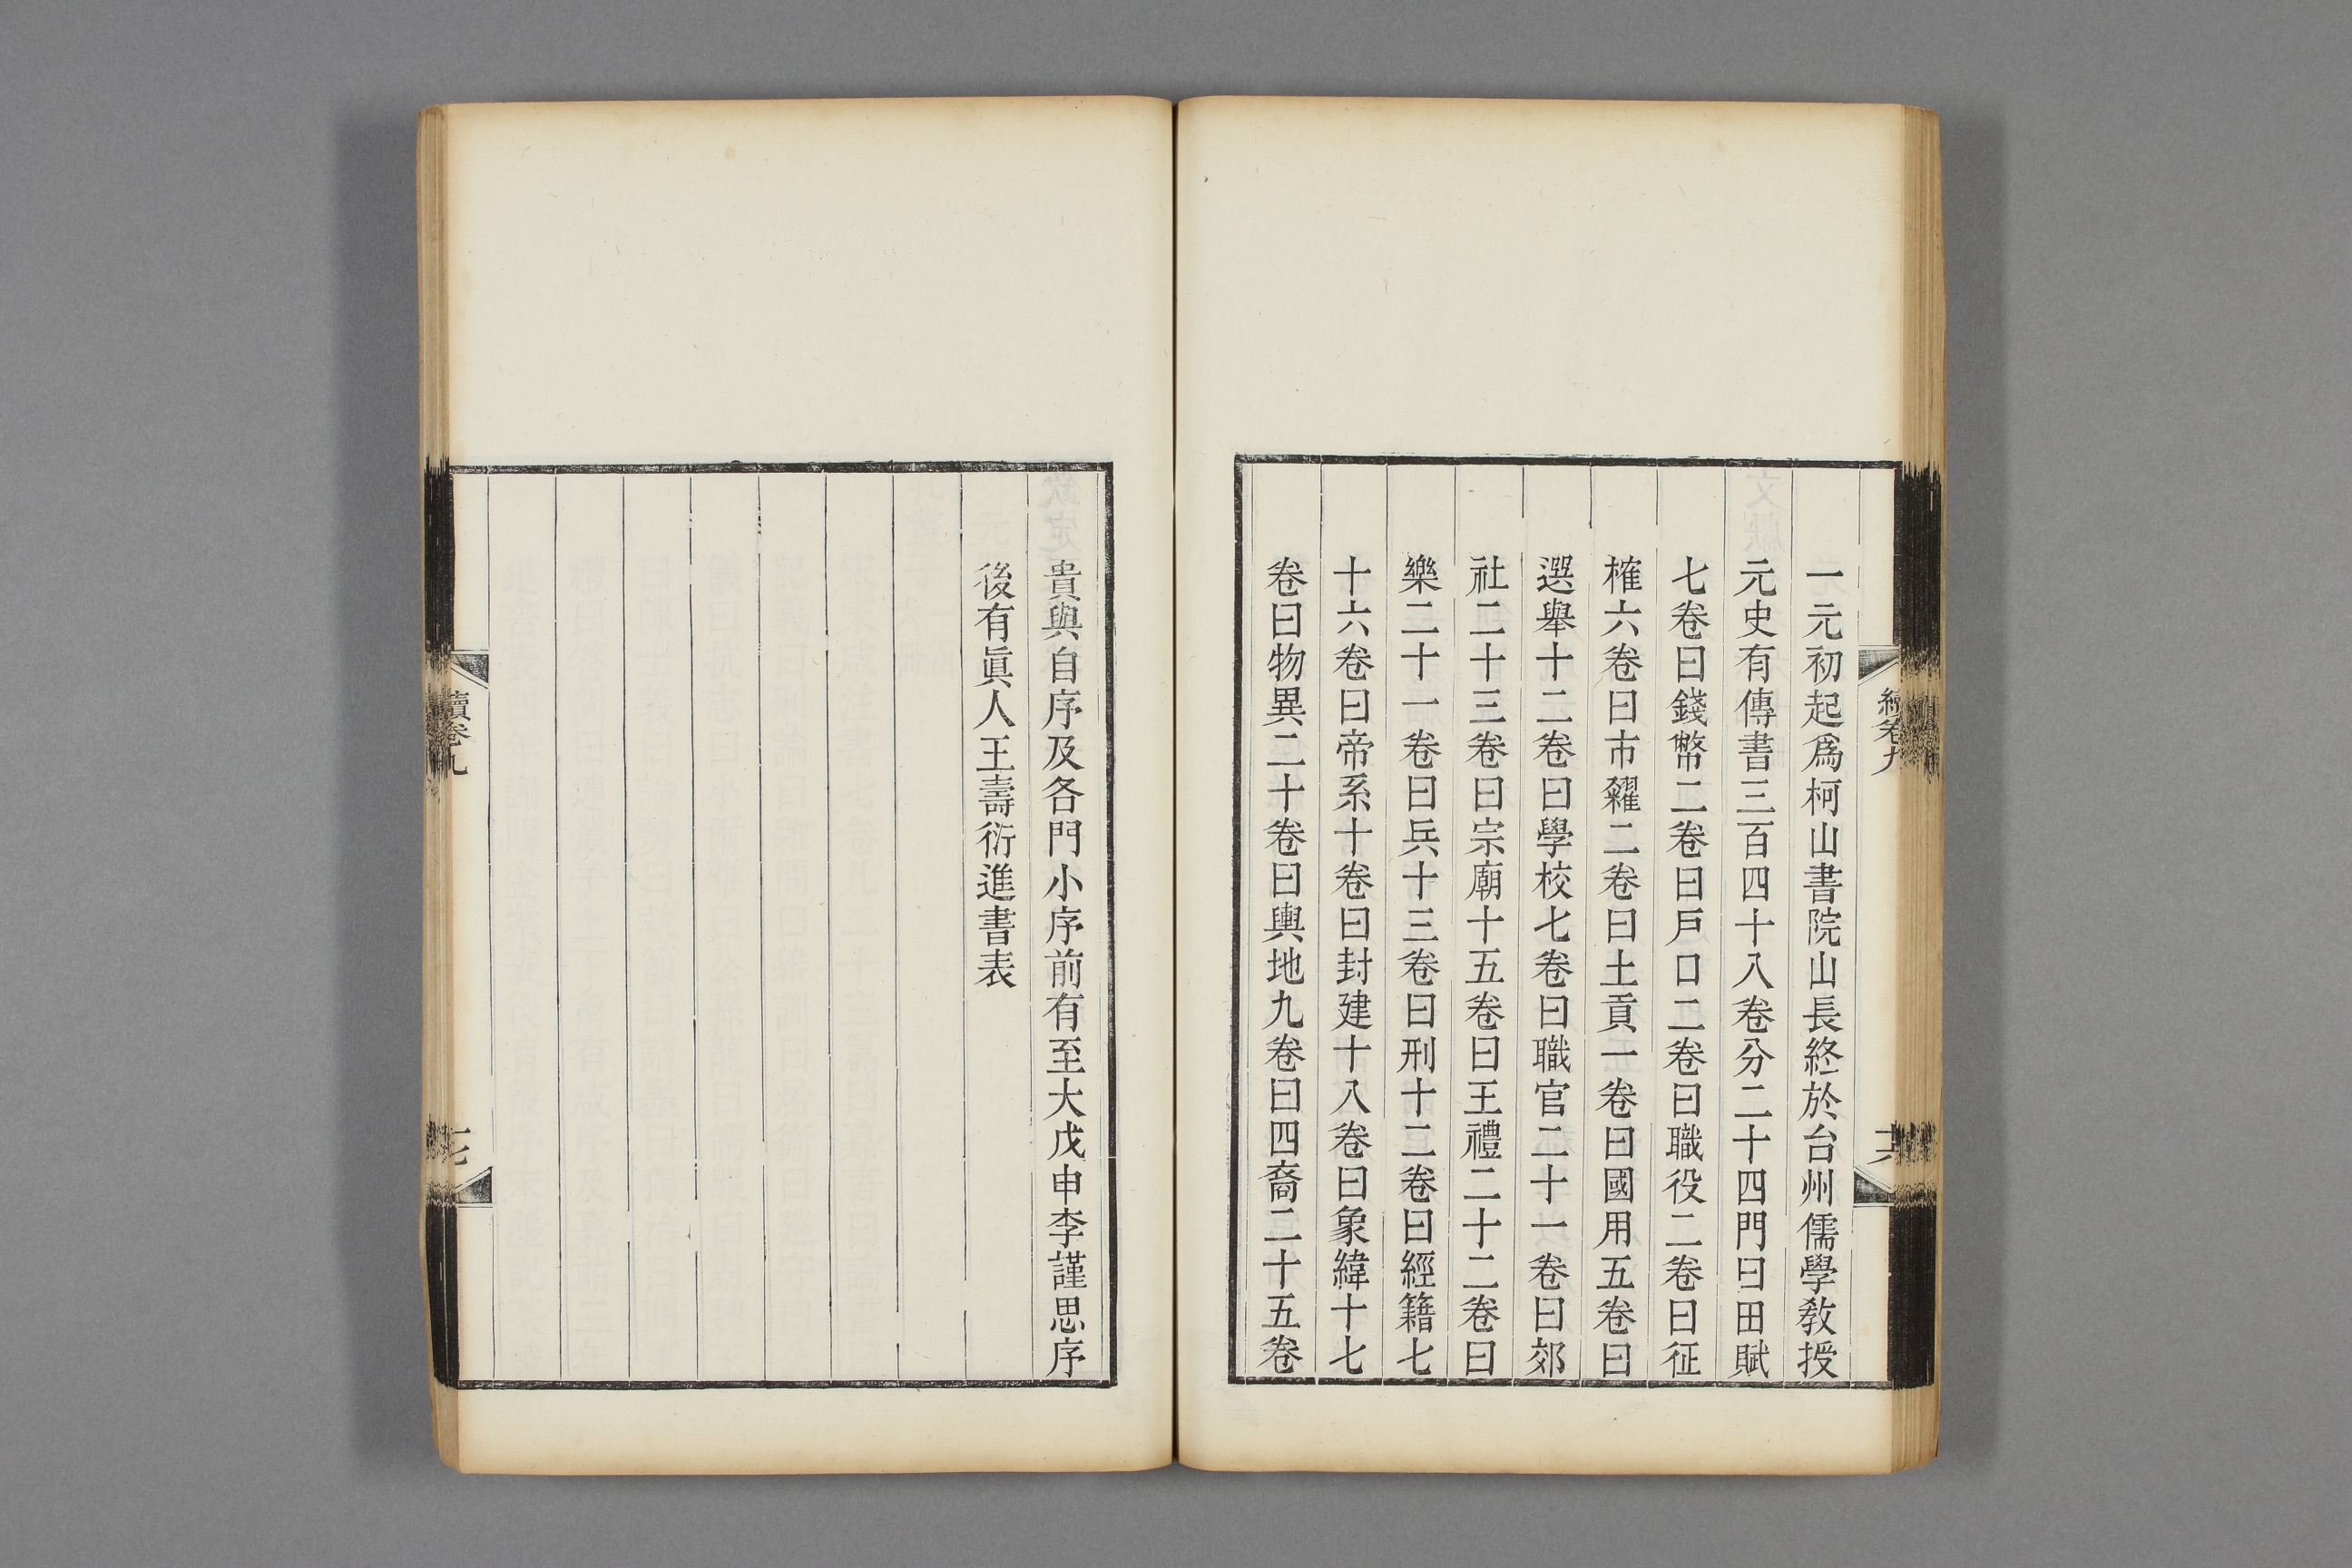 一元初起爲柯山書院山長終於台州儒學敎授
元史有傳書三百四十八卷分二十四門曰田賦
七卷曰錢幣二卷曰戶口二卷曰職役二卷曰征
榷六卷曰市糴二卷曰土貢一卷曰國用五卷曰
選舉十二卷曰學校七卷曰職官二十一卷曰郊
社二十三卷曰宗廟十五卷曰王禮二十二卷曰
樂二十一卷曰兵十三卷曰刑十二卷曰經籍七
十六卷曰帝系十卷曰封建十八卷曰象緯十七
卷曰物異二十卷曰輿地九卷曰四裔二十五卷
續卷九
十六
貴與自序及各門小序前有至大戊申李謹思序
後有眞人王壽衍進書表
續卷九
十七